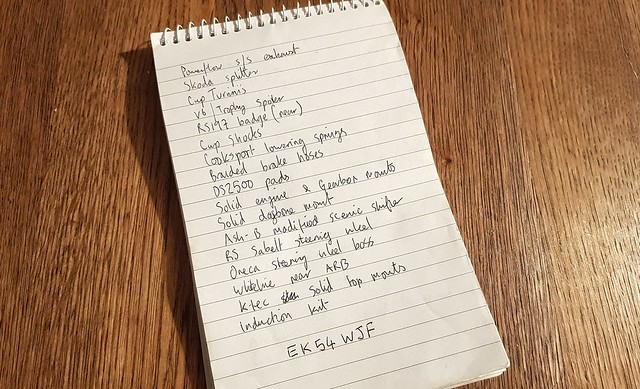 Powerflow s/s exhaust
Skoda splitter
Cup Turinis
V6 / Trophy spoiler
RS197 badge (rear)
Cup shocks
Cooksport lowering springs
Braided brake hoses
DS2500 pads
Solid engine & Gearbox mounts
Solid dogbone mount
Ash-B modified scenic shifter
RS Sabelt steering wheel
Omeca steering wheel boss
Whiteline rear ARB
Ktec solid top mounts
Induction kit
EK54 WJF